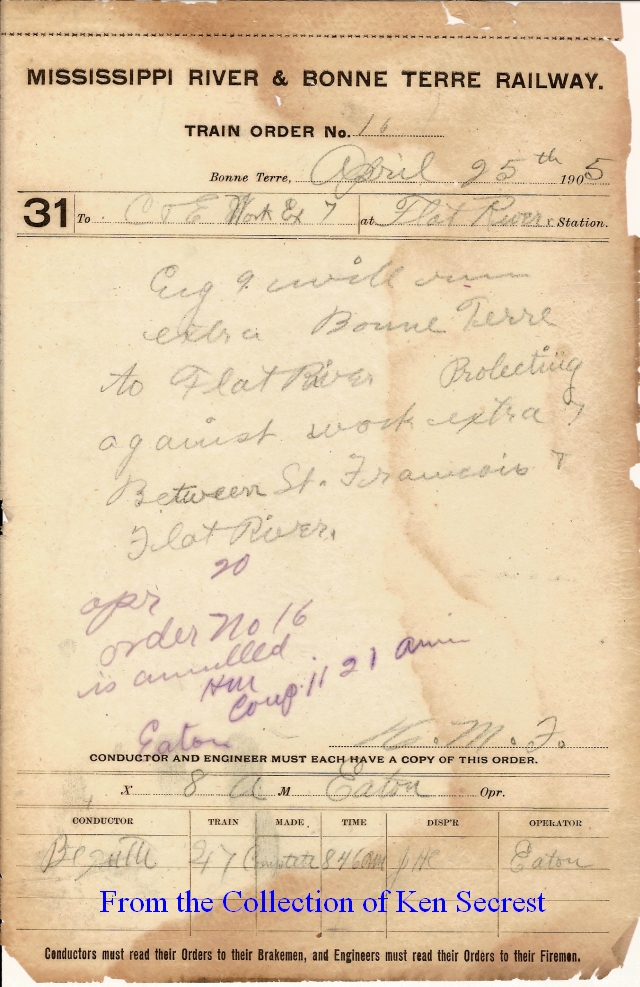 MISSISSIPPI RIVER & BONNE TERRE RAILWAY.
TRAIN ORDER No. 16
Bonne Terre, April 25th 1905
31 To C & E Work Ex 7 at Flat River Station.
Eng 9 will run
extra Bonne Terre
to Flat River Protecting
against work extra 7
Between St. Francois &
Flat River.
apr 20
order No 16
is annulled
HM
Comp 11 21 am
Eaton
H. M. F.
CONDUCTOR AND ENGINEER MUST EACH HAVE A COPY OF THIS ORDER.
X 8 A M Eaton Opr.
CONDUCTOR TRAIN MADE TIME DISP'R OPERATOR
47 Complete 846 AM Eaton
From the Collection of Ken Secrest
Conductors must read their Orders to their Brakemen, and Engineers must read their Orders to their Firemen.